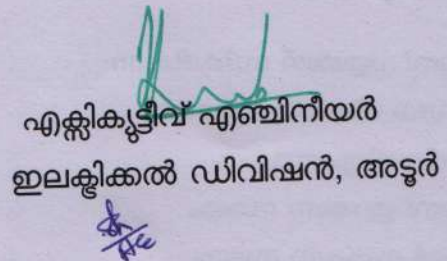 എക്സിക്യുട്ടീവ് എഞ്ചിനീയർ
ഇലക്ട്രിക്കൽ ഡിവിഷൻ, അടൂർ